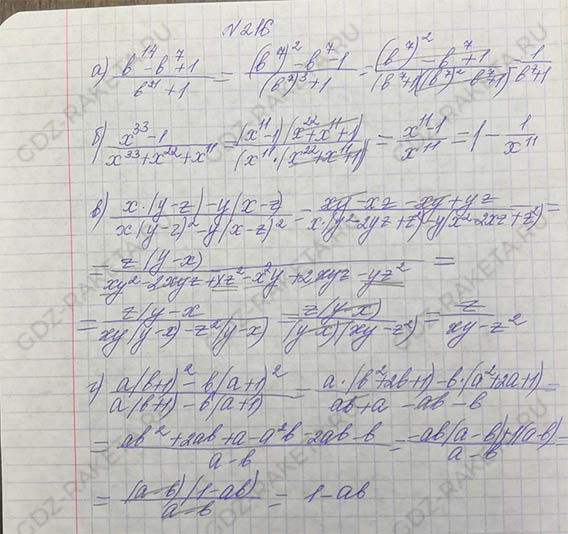 №216
а) (в^14 - в^7 + 1)/(в^21 + 1) = ((в^7)^2 - в^7 1)/((в^7)^3 + 1) = ((в^7)^2 - в^7 + 1)/((в^7+1)((в^7)^2 - в^7+1)) = 1/(в^7+1)
б) (x^33 - 1)/(x^33 + x^22 + x^11) = (x^11-1)(x^22+x^11+1)/(x^11 · (x^22+x^11+1)) = (x^11-1)/x^11 = 1 - 1/x^11
в) (x·(y-z) - y(x-z))/(x(y-z)^2 - y(x-z)^2) = (xy - xz - xy + yz)/(x(y^2-2yz+z^2) - y(x^2-2xz+z^2)) =
= z(y-x)/(xy^2 - 2xyz + xz^2 - x^2y + 2xyz - yz^2) =
= z(y-x/(xy(y-x) - z^2(y-x) = z(y-x)/((y-x)(xy-z^2) = z/(xy-z^2)
г) (a(в+1)^2 - в(a+1)^2)/(a(в+1) - в(a+1) = (a·(в^2+2в+1) - в·(a^2+2a+1)/(aв+a - aв - в =
= (aв^2 + 2aв + a - a^2в - 2aв - в)/(a-в) = (-aв(a-в)+1(a-в)/(a-в) =
= (a-в)(1-aв)/(a-в) = 1-aв
GDZ-RAKETA.RU